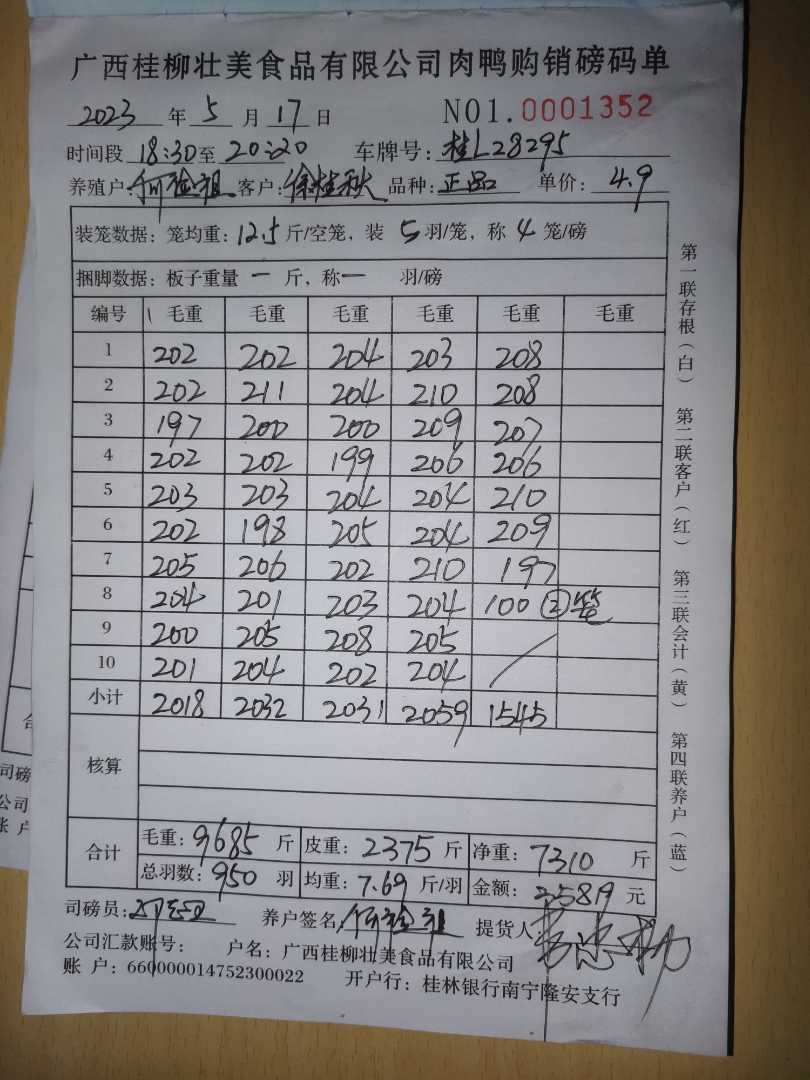 广西桂柳壮美食品有限公司肉鸭购销磅码单
2023 年 5 月 17 日 NO1.0001352
时间段 18:30 至 20:20 车牌号: 桂L28295
养殖户: 何 祖 客户: 徐桂秋 品种: 正品 单价: 4.9
装笼数据: 笼均重: 12.5 斤/空笼, 装 5 羽/笼, 称 4 笼/磅
捆脚数据: 板子重量 一 斤, 称 一 羽/磅
编号 毛重 毛重 毛重 毛重 毛重 毛重
1 202 202 204 203 208
2 202 211 204 210 208
3 197 200 200 209 207
4 202 202 199 206 206
5 203 203 204 204 210
6 202 198 205 204 209
7 205 206 202 210 197
8 204 201 203 204 100 ②笼
9 200 205 208 205
10 201 204 202 204
小计 2018 2032 2031 2059 1545
核算
合计 毛重: 9685 斤 皮重: 2375 斤 净重: 7310 斤
总羽数: 950 羽 均重: 7.69 斤/羽 金额: 35819 元
司磅员: 养户签名: 何 祖 提货人:
公司汇款账号: 户名: 广西桂柳壮美食品有限公司
账 户: 660000014752300022 开户行: 桂林银行南宁隆安支行
第一联存根(白) 第二联客户(红) 第三联会计(黄) 第四联养户(蓝)
司磅
公司
账 户